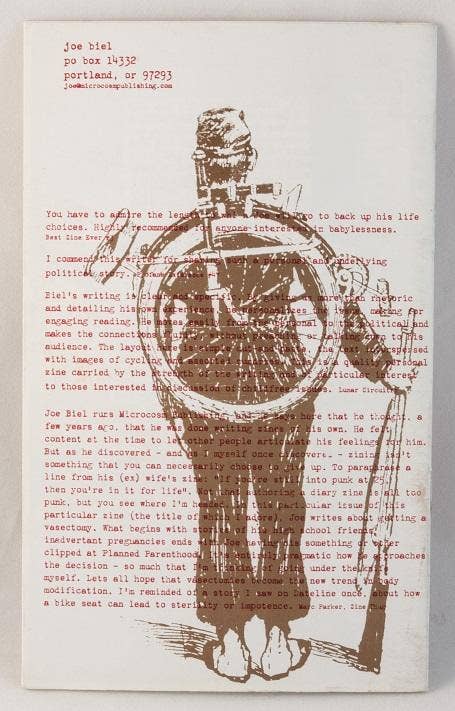 joe biel
po box 14332
portland, or 97293
joe@microcosmpublishing.com
You have to admire the length to Joe will go to back up his life
choices. Highly recommended for anyone interested in babylessness.
Best Zine Ever
I commend this writer for sharing such a personal and underlying
political story.
Biel's writing is clear and specific. giving us more than rhetoric
and detailing his own experience. He personalizes the making for
engaging reading. He moves easily from the personal to the political and
makes the connections his
audience. The layout is The text interspersed
with images of cycling and assorted quality personal
zine carried by the strength of the writing and of particular interest
to those interested in discussion of childfree issues. Lunar Circuitry
Joe Biel runs Microcosm Publishing, and he says here that he thought, a
few years ago, that he was done writing zines of his own. He felt
content at the time to let other people articulate his feelings for him.
But as he discovered - and I myself once - zining isn't
something that you can necessarily choose to give up. To paraphrase a
line from his (ex) wife's zine if you're still into punk at 25,
then you're in it for life". authoring a diary zine all too
punk, but you see where I'm headed. particular issue of this
particular zine (the title of which I adore), Joe writes about getting a
vasectomy. What begins with stories of his high school friends'
inadvertant pregnancies ends with Joe having his something or other
clipped at Planned Parenthood. entirely pragmatic how he approaches
the decision - so much that I'm thinking going under the knife
myself. Lets all hope that vasectomies become new trend in body
modification. I'm reminded of a story I saw on Dateline once, about how
a bike seat can lead to sterility or impotence. Marc Parker, Zine Thug